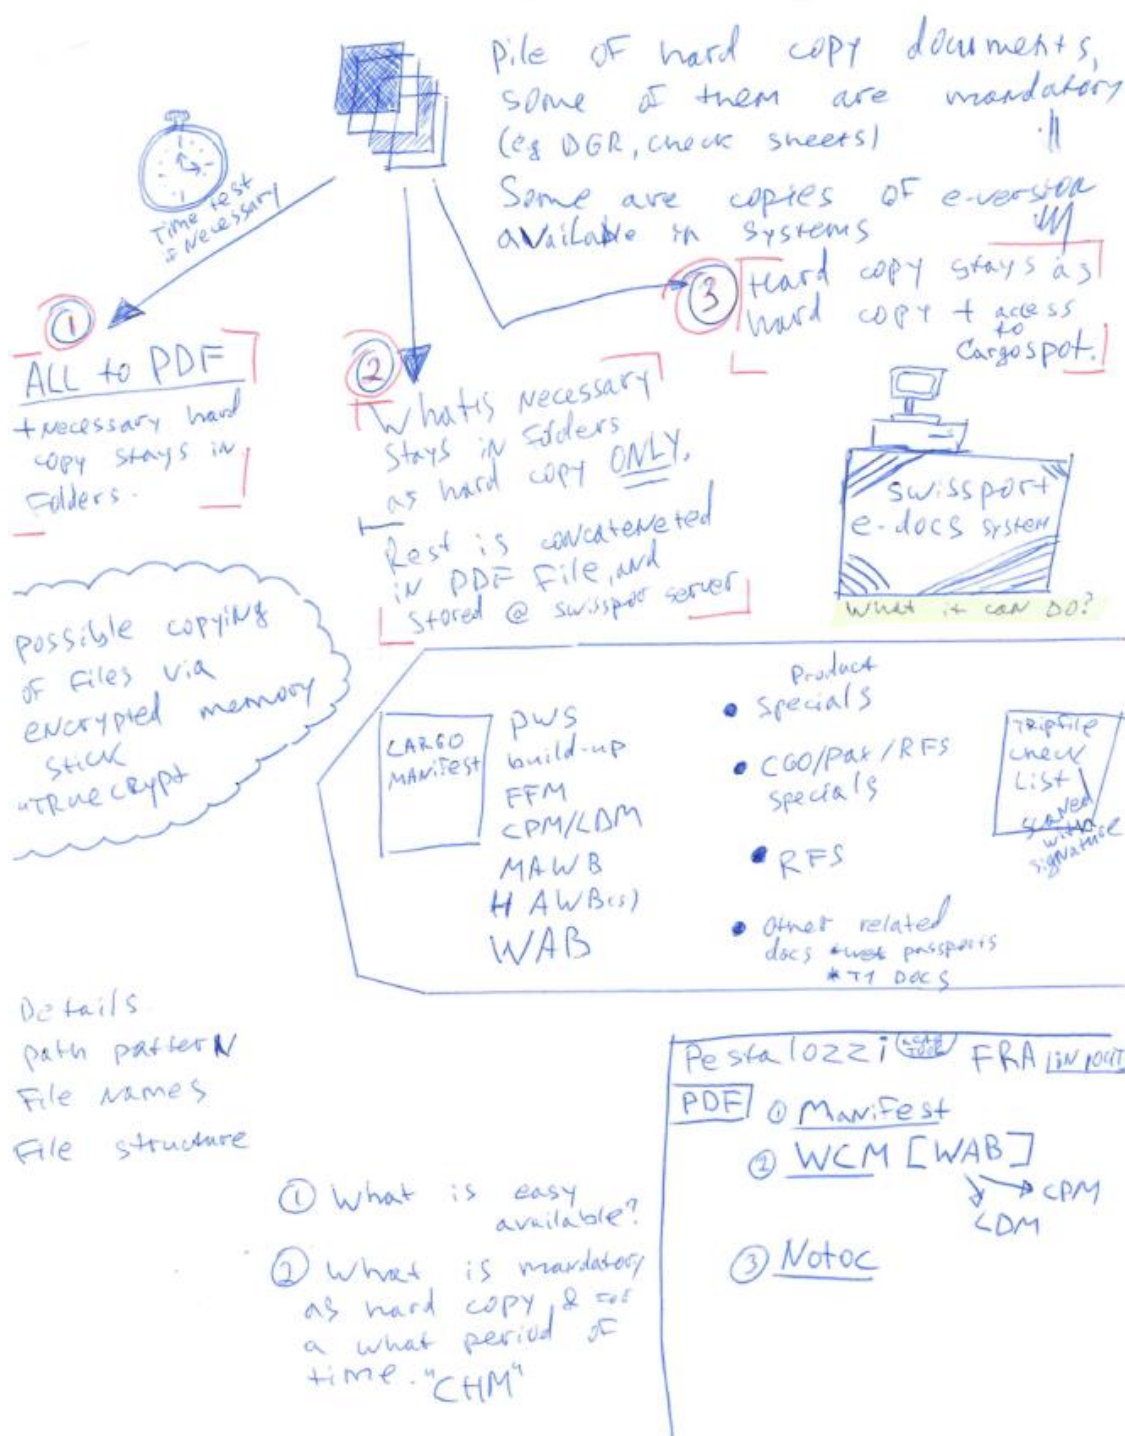 pile of hard copy documents,
some of them are mandatory
(eg DGR, check sheets)
Some are copies of e-version
available in systems
Time test
is Necessary
1
ALL to PDF
+ Necessary hard
copy stays in
Folders.
2
What is Necessary
stays in folders
as hard copy ONLY.
Rest is concateneted
in PDF File, and
stored @ swissport server
3
Hard copy stays as
hard copy + access
to
Cargospot.
swissport
e-docs system
What it can DO?
possible copying
of files via
encrypted memory
stick
"TRUECRYPT
CARGO
MANIFEST
PWS
build-up
FFM
CPM/LDM
MAWB
HAWB(s)
WAB
Product
• specials
• CGO/Pax/RFS
specials
• RFS
• Other related
docs passports
* T1 DOCS
TRIPFILE
check
List
with
signature
Details
path pattern
File Names
File structure
① What is easy
available?
② What is mandatory
as hard copy & for
a what period of
time. "CHM"
Pestalozzi FRA
PDF ① Manifest
② WCM [WAB]
CPM
LDM
③ Notoc